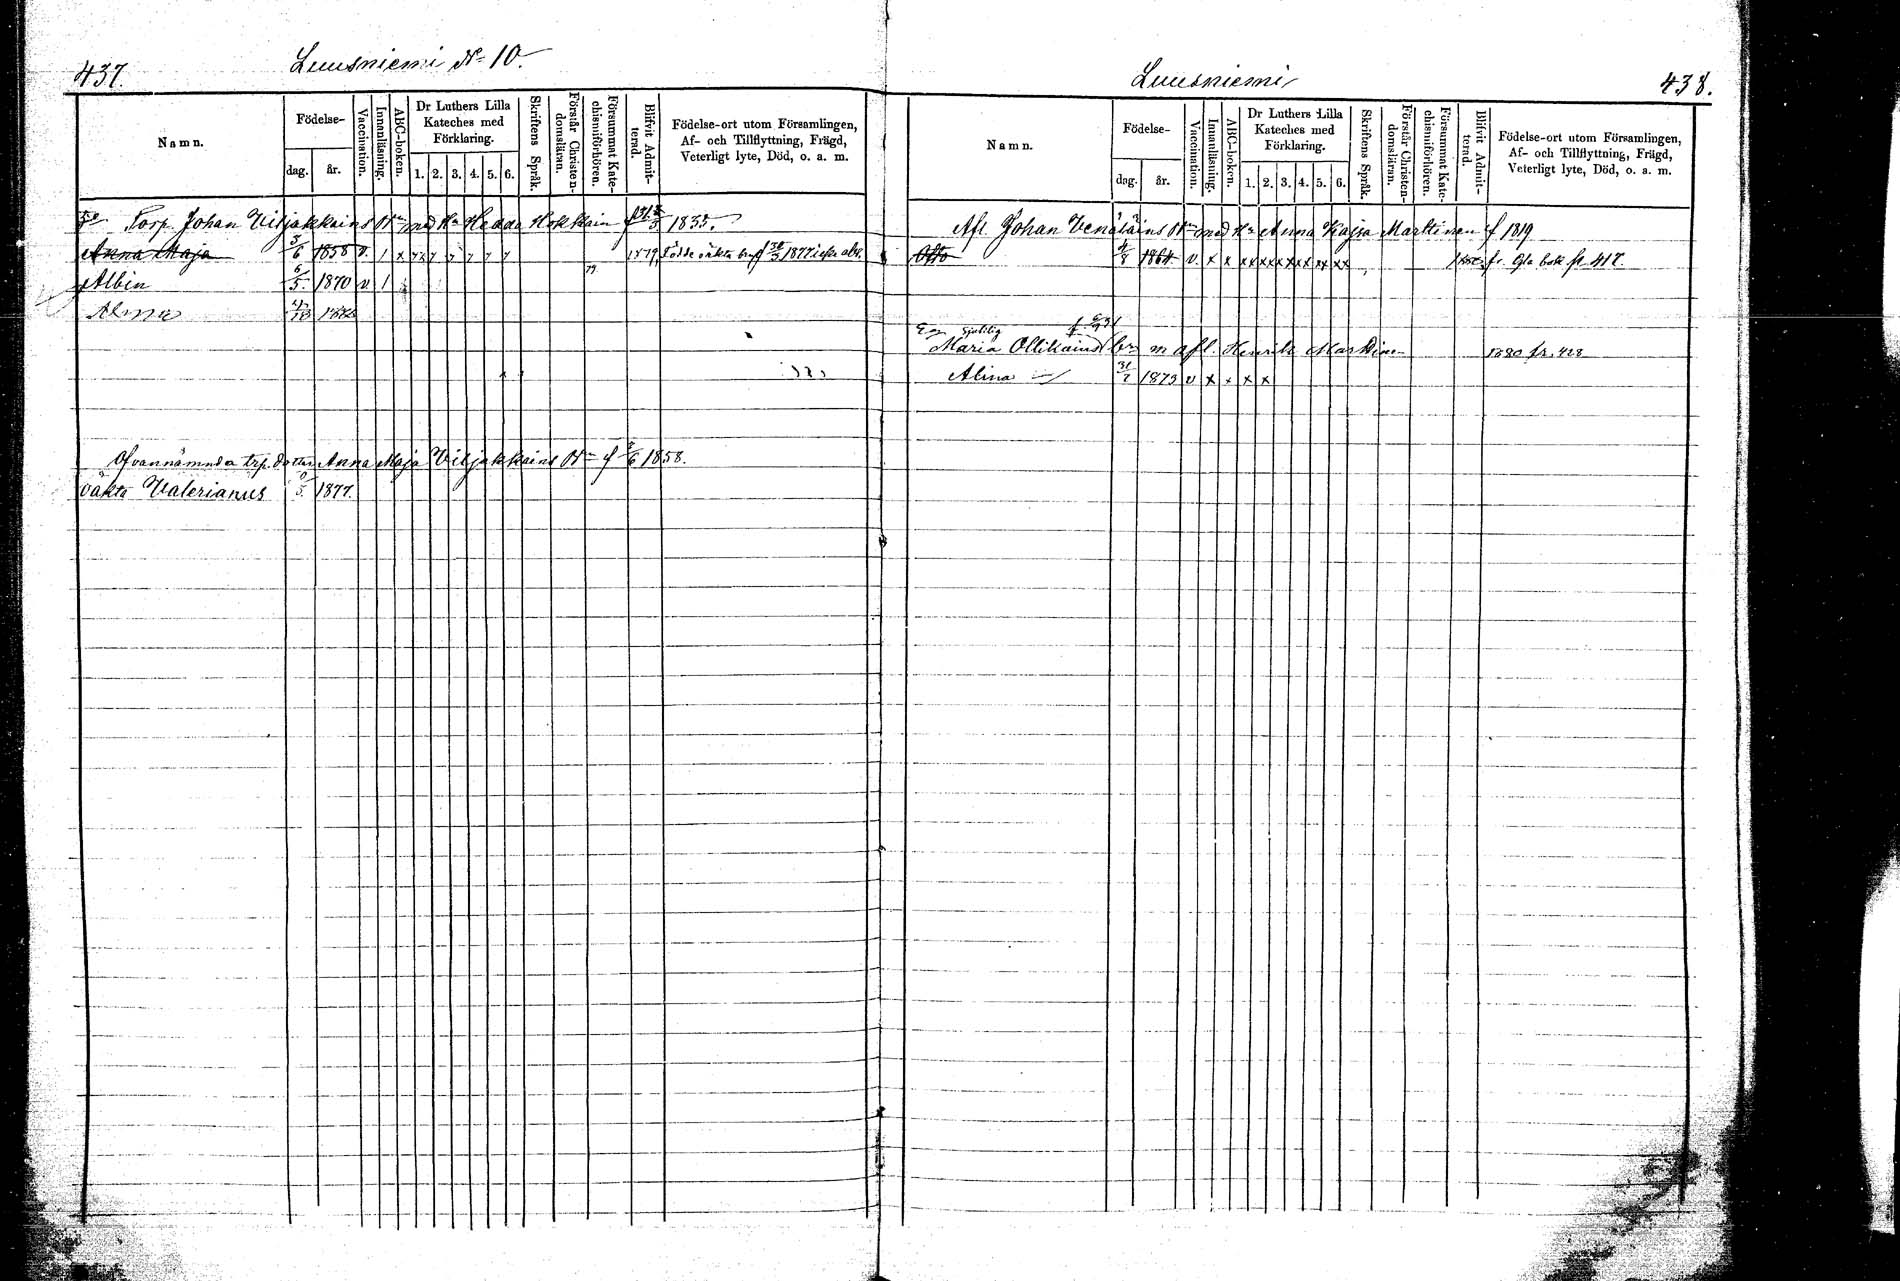 437.
Luusniemi No 10.
Namn.
Födelse-
dag. år.
Vaccination.
Innanläsning.
ABC-boken.
Dr Luthers Lilla
Kateches med
Förklaring.
1. 2. 3. 4. 5. 6.
Skriftens Språk.
Förstår Christen-
domsläran.
Försummat Kate-
chismiförhören.
Blifvit Admit-
terad.
Födelse-ort utom Församlingen,
Af- och Tillflyttning, Frägd,
Veterligt lyte, Död, o. a. m.
Torp. Johan Viljakkains Bn med Hu Hedda Hokkain f 1835.
Anna Maja 3/6 1858 v. 1 x 7 7 7 7 7 7 1879 Födde oäkta 1877
Albin 6/5 1870 v 1 79
Alma
Ofvannämnda trp. dotter Anna Maja Viljakkains Bn f 3/6 1858.
oäkta Valerianus 1877.
Luusniemi
438.
Namn.
Födelse-
dag. år.
Vaccination.
Innanläsning.
ABC-boken.
Dr Luthers Lilla
Kateches med
Förklaring.
1. 2. 3. 4. 5. 6.
Skriftens Språk.
Förstår Christen-
domsläran.
Försummat Kate-
chismiförhören.
Blifvit Admit-
terad.
Födelse-ort utom Församlingen,
Af- och Tillflyttning, Frägd,
Veterligt lyte, Död, o. a. m.
Afl. Johan Venäläins Bn med Hu Anna Kajsa Marttinen f 1819
Otto 4/8 1864 v. x x xx xx xx xx xx xx fr. Gla bok p. 417
Maria Ollikains bn m afl. Henrik Marttinen 1880 fr. 428
Alina 31/7 1873 v x x x x